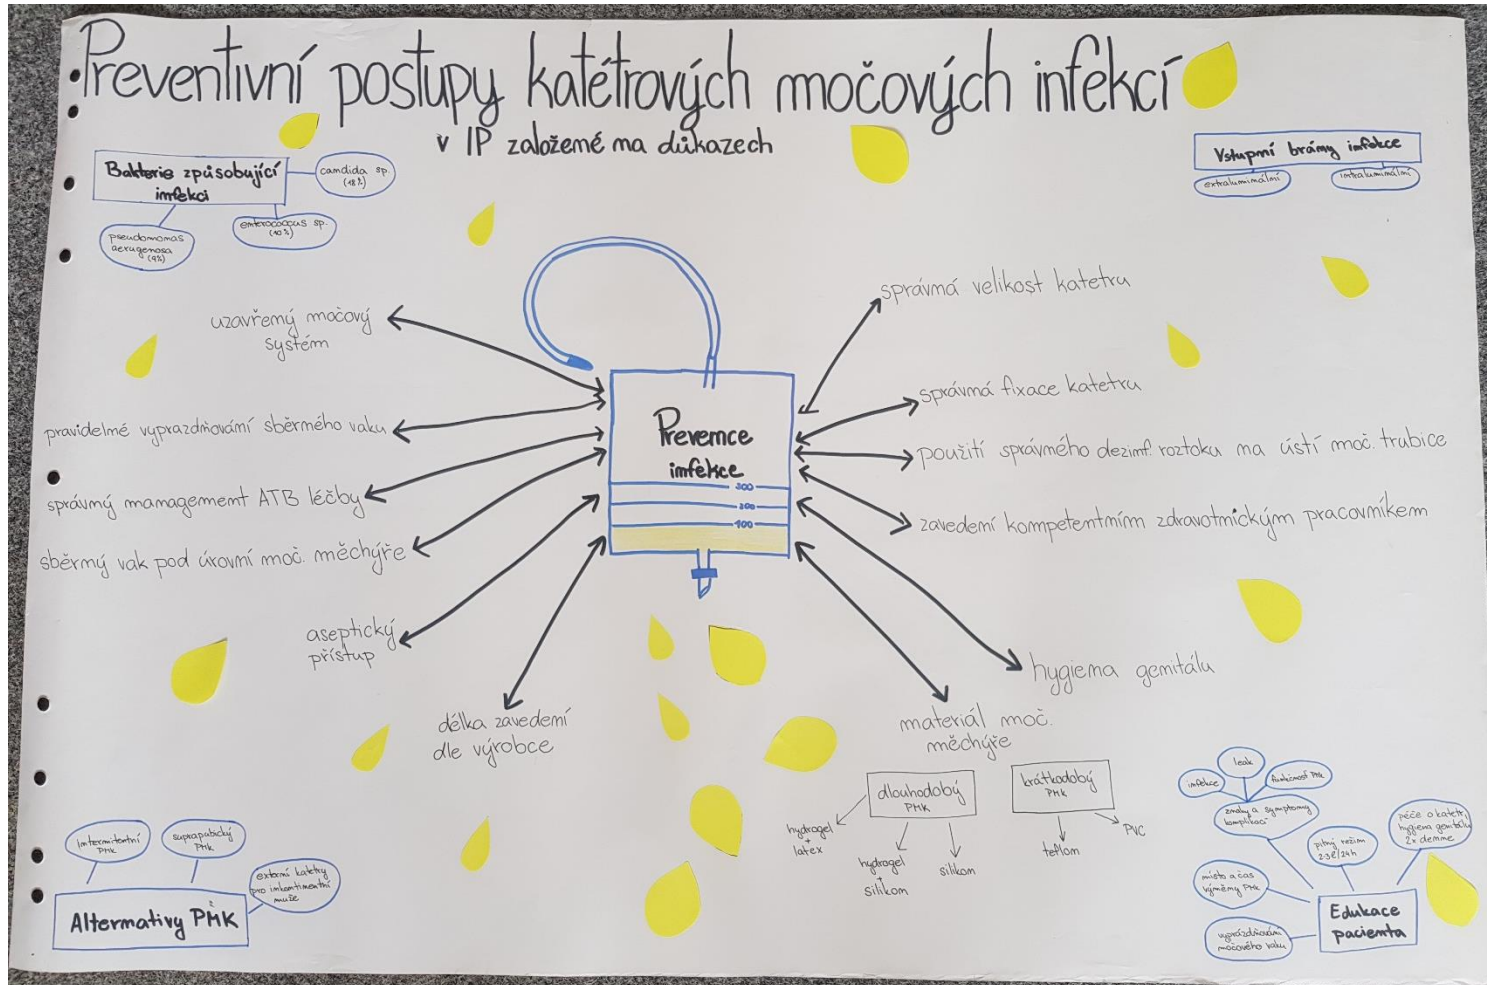 Preventivní postupy katétrových močových infekcí
v IP založené na důkazech
Bakterie způsobující
infekci
candida sp.
(18%)
enterococcus sp.
(10%)
pseudomonas
aerugenosa
(9%)
Vstupní brány infekce
extraluminální
intraluminální
uzavřený močový
systém
pravidelné vyprazdňování sběrného vaku
správný management ATB léčby
sběrný vak pod úrovní moč. měchýře
aseptický
přístup
délka zavedení
dle výrobce
Prevence
infekce
300
200
100
správná velikost katetru
správná fixace katetru
použití správného dezinf. roztoku na ústí moč. trubice
zavedení kompetentním zdravotnickým pracovníkem
hygiena genitálu
materiál moč.
měchýře
dlouhodobý
PMK
hydrogel
+
latex
hydrogel
+
silikon
silikon
krátkodobý
PMK
teflon
PVC
Intermitentní
PMK
suprapubický
PMK
externí katetry
pro inkontinentní
muže
Alternativy PMK
infekce
leak
funkčnost PMK
znaky a symptomy
komplikací
pitný režim
2-3l/24h
péče o katetr,
hygiena genitálu
2x denně
místo a čas
výměny PMK
vyprázdňování
močového vaku
Edukace
pacienta